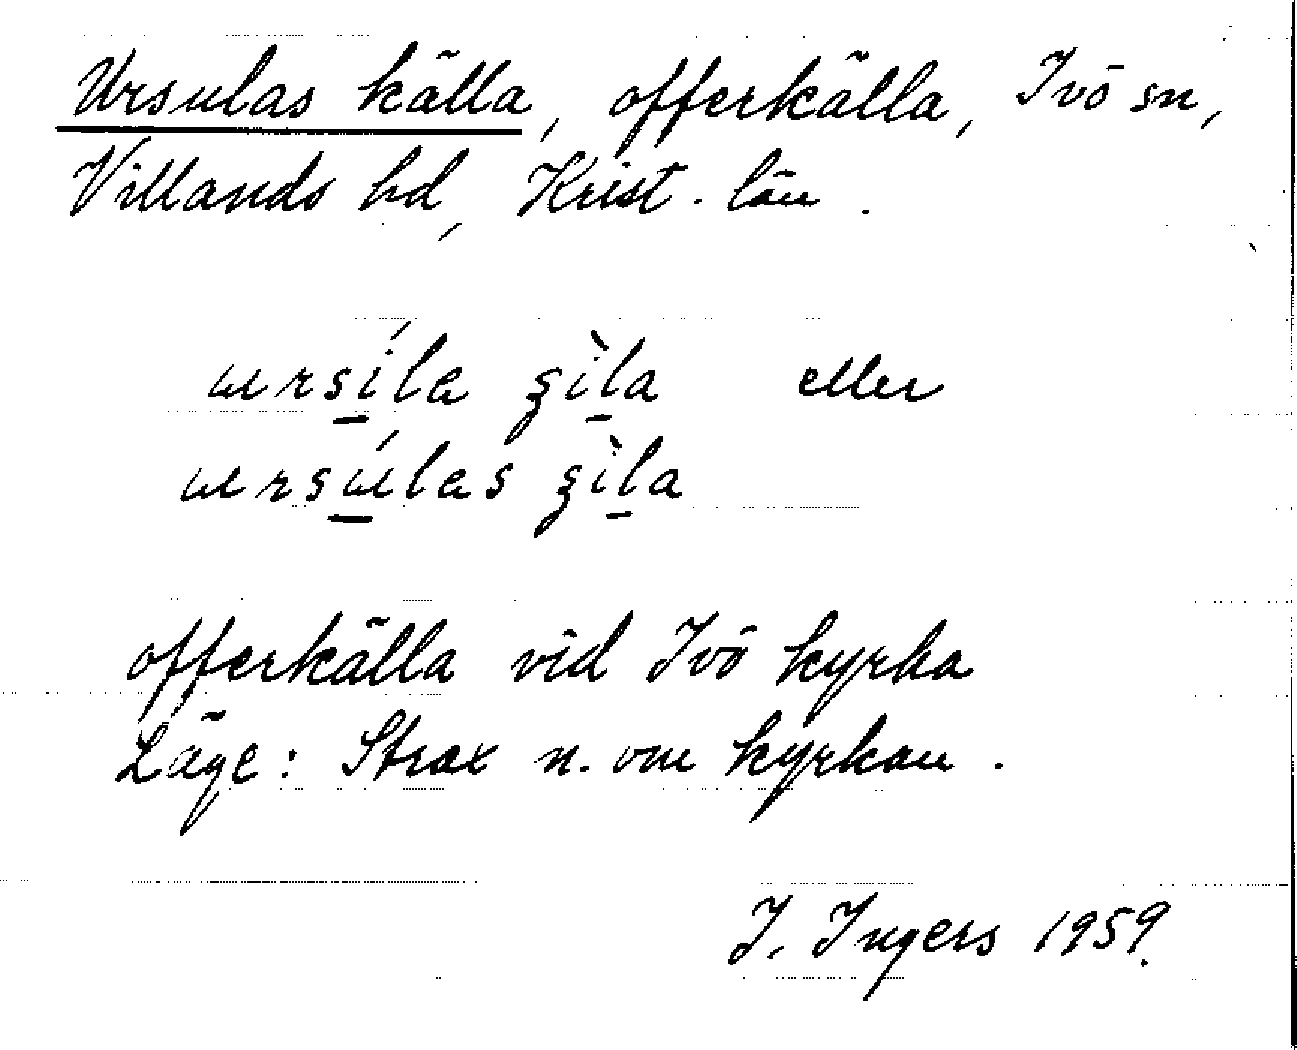 Ursulas källa, offerkälla, Ivö sn,
Villands hd, Krist. län.
ursíla ʒìla eller
ursúlas ʒìla
offerkälla vid Ivö kyrka
Läge: Strax n. om kyrkan.
I. Ingers 1959.